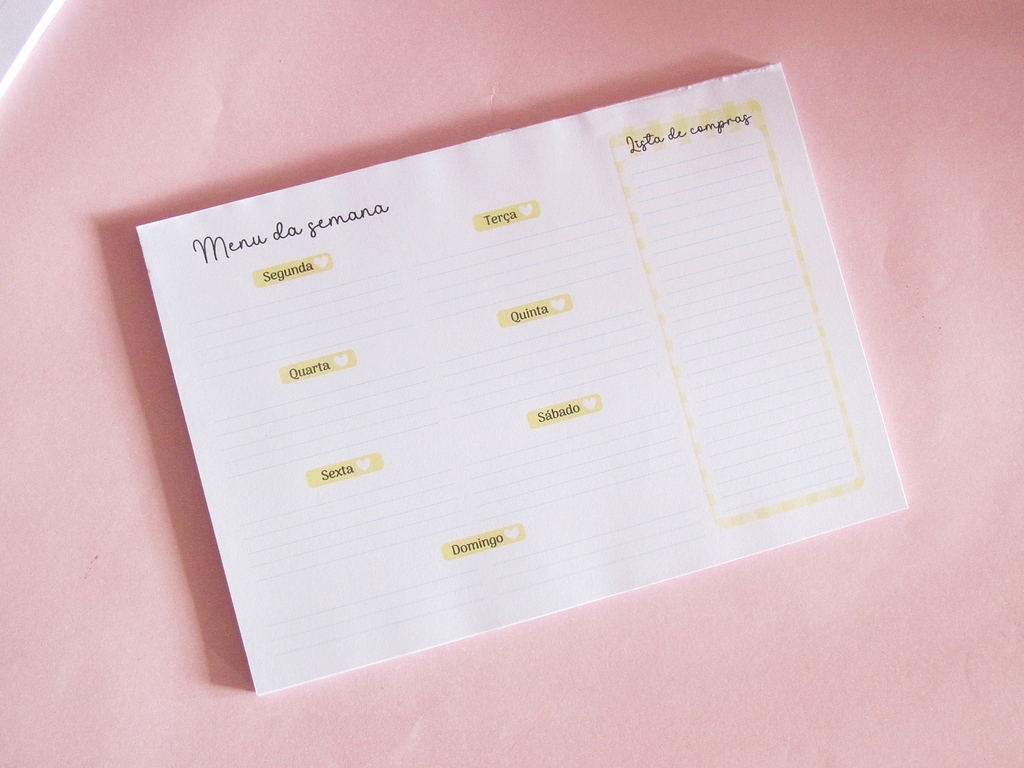 Menu da semana
Segunda
Terça
Quarta
Quinta
Sexta
Sábado
Domingo
Lista de compras